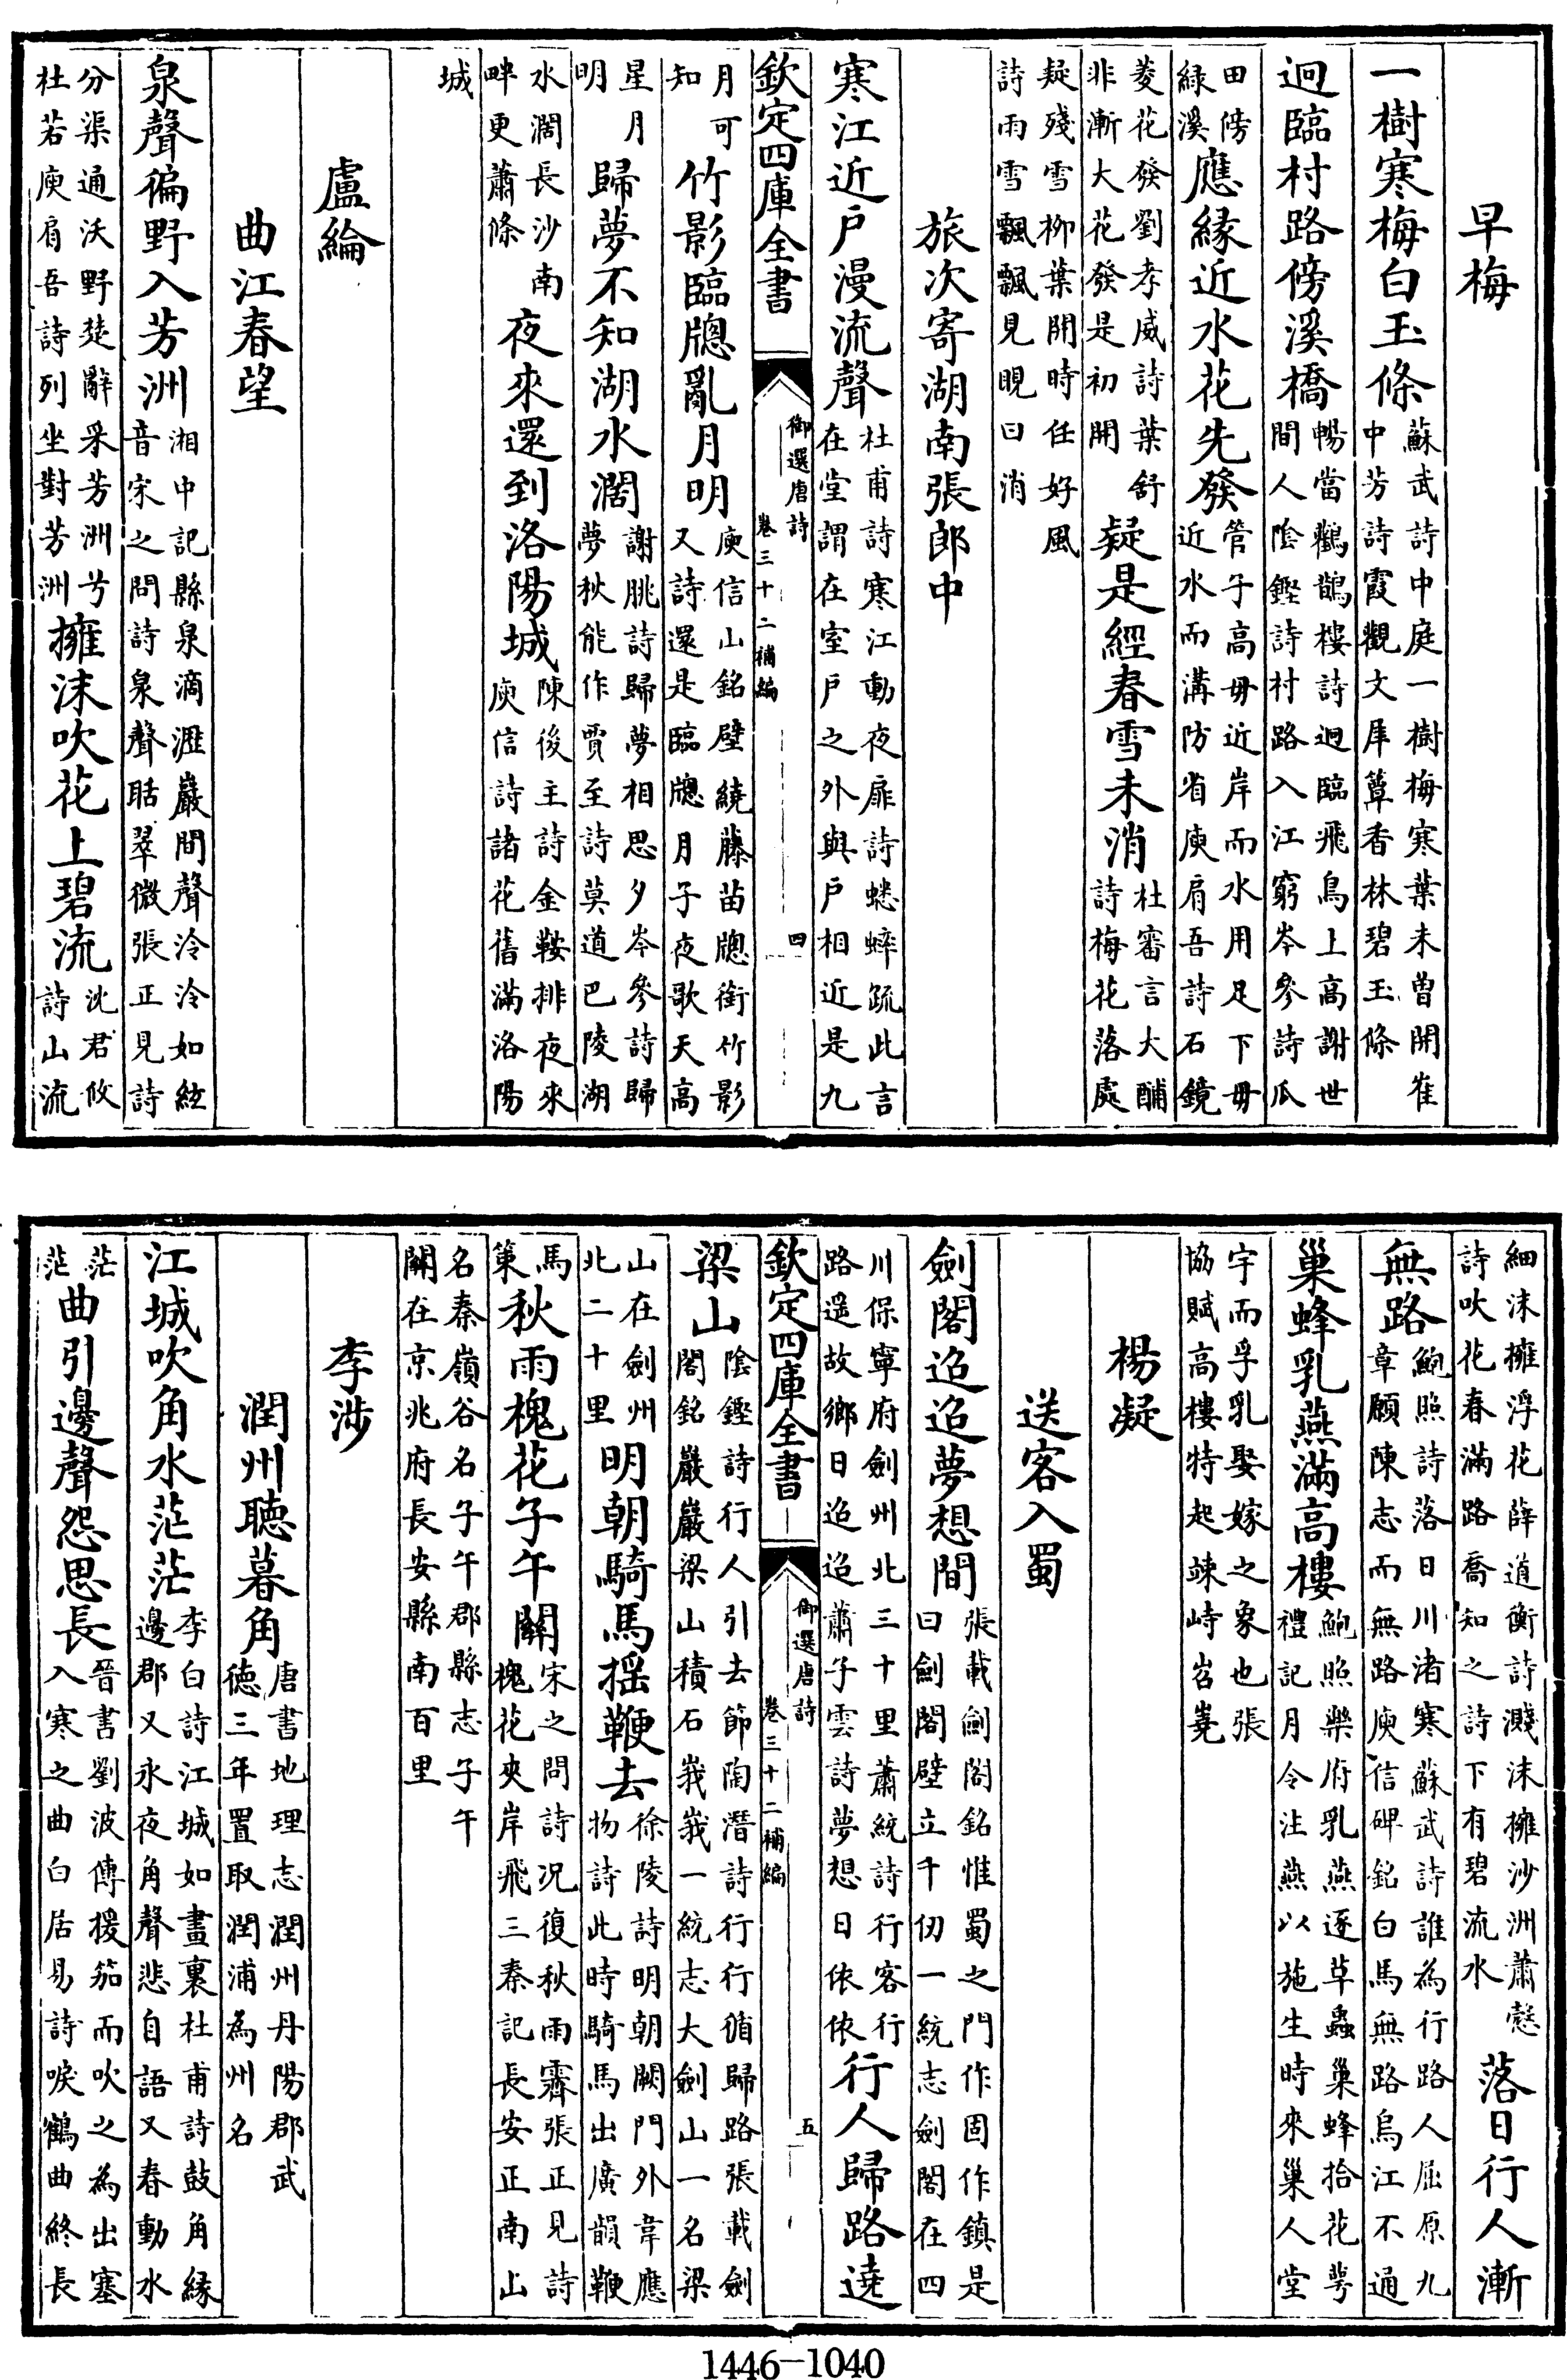 早梅
一樹寒梅白玉條蘇武詩中庭一樹梅寒葉未曽開崔中芳詩霞觀文犀簟香林碧玉條
迥臨村路傍溪橋暢當鸛鵲樓詩迥臨飛鳥上高謝世間人陰鏗詩村路入江窮岑參詩瓜
田傍緑溪應縁近水花先發管子高毋近岸而水用足下毋近水而溝防省庾肩吾詩石鏡
菱花發劉孝威詩葉舒非漸大花發是初開疑是經春雪未消杜審言大酺詩梅花落處
疑殘雪柳葉開時任好風詩雨雪飄飄見晛曰消
旅次寄湖南張郎中
寒江近戶漫流聲杜甫詩寒江動夜扉詩蟋蟀疏此言在堂謂在室戶之外與戶相近是九
欽定四庫全書 御選唐詩 卷三十二補編 四
月可知竹影臨牕亂月明庾信山銘壁繞藤苗牕銜竹影又詩還是臨牕月子夜歌天高
星月明歸夢不知湖水濶謝朓詩歸夢相思夕岑參詩歸夢秋能作賈至詩莫道巴陵湖
水濶長沙南畔更蕭條夜來還到洛陽城陳後主詩金鞍排夜來庾信詩諸花舊滿洛陽
城
盧綸
曲江春望
泉聲徧野入芳洲湘中記縣泉滴瀝巖間聲泠泠如絃音宋之問詩泉聲聒翠微張正見詩
分渠通沃野楚辭采芳洲兮杜若庾肩吾詩列坐對芳洲擁沫吹花上碧流沈君攸詩山流
細沫擁浮花薛道衡詩濺沫擁沙洲蕭慤詩吹花春滿路喬知之詩下有碧流水落日行人漸
無路鮑照詩落日川渚寒蘇武詩誰為行路人屈原九章願陳志而無路庾信碑銘白馬無路烏江不通
巢蜂乳燕滿高樓鮑照樂府乳燕逐草蟲巢蜂拾花萼禮記月令注燕以施生時來巢人堂
宇而孚乳娶嫁之象也張協賦高樓特起竦峙岧嶤
楊凝
送客入蜀
劍閣迢迢夢想間張載劍閣銘惟蜀之門作固作鎮是曰劍閣壁立千仞一統志劍閣在四
川保寧府劍州北三十里蕭統詩行客行路遥故鄉日迢迢蕭子雲詩夢想日依依行人歸路遶
欽定四庫全書 御選唐詩 卷三十二補編 五
梁山陰鏗詩行人引去節陶潛詩行行循歸路張載劍閣銘巖巖梁山積石峩峩一統志大劍山一名梁
山在劍州北二十里明朝騎馬揺鞭去徐陵詩明朝闕門外韋應物詩此時騎馬出廣韻鞭
馬箠秋雨槐花子午關宋之問詩况復秋雨霽張正見詩槐花夾岸飛三秦記長安正南山
名秦嶺谷名子午郡縣志子午關在京兆府長安縣南百里
李涉
潤州聽暮角唐書地理志潤州丹陽郡武德三年置取潤浦為州名
江城吹角水茫茫李白詩江城如畫裏杜甫詩鼓角縁邊郡又永夜角聲悲自語又春動水
茫茫曲引邊聲怨思長晉書劉波傳援笳而吹之為出塞入寒之曲白居易詩唳鶴曲終長
1446-1040